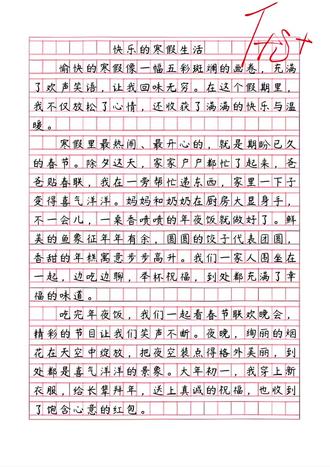 Test
快乐的寒假生活
愉快的寒假像一幅五彩斑斓的画卷，充满
了欢声笑语，让我回味无穷。在这个假期里，
我不仅放松了心情，还收获了满满的快乐与温
暖。
寒假里最热闹、最开心的，就是期盼已久
的春节。除夕这天，家家户户都忙了起来，爸
爸贴春联，我在一旁帮忙递东西，家里一下子
变得喜气洋洋。妈妈和奶奶在厨房大显身手，
不一会儿，一桌香喷喷的年夜饭就做好了。鲜
美的鱼象征年年有余，圆圆的饺子代表团圆，
香甜的年糕寓意步步高升。我们一家人围坐在
一起，边吃边聊，举杯祝福，到处都充满了幸
福的味道。
吃完年夜饭，我们一起看春节联欢晚会，
精彩的节目让我们笑声不断。夜晚，绚丽的烟
花在天空中绽放，把夜空装点得格外美丽，到
处都是喜气洋洋的景象。大年初一，我穿上新
衣服，给长辈拜年，送上真诚的祝福，也收到
了饱含心意的红包。